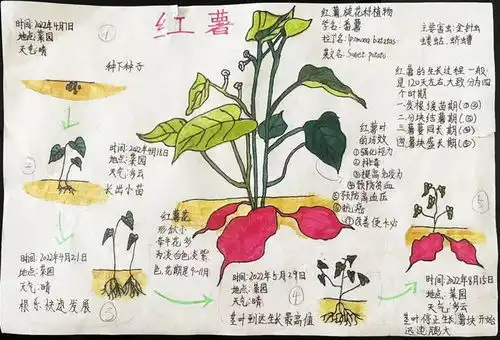 红薯
时间:2022年4月7日
地点:菜园
天气:晴
①
种下种子
②
时间:2022年4月18日
地点:菜园
天气:多云
长出小苗
时间:2022年4月21日
地点:菜园
天气:晴
根系快速发展
③
红薯花
形似小
牵牛花,多
为淡白色,淡紫
色,花期是9-11月
时间:2022年5月29日
地点:菜园
天气:晴
④
茎叶到达生长最高值
红薯,旋花科植物
学名:番薯
拉丁名:Ipomoea batatas
英文名:Sweet potato
主要害虫:金针虫
蝼蛄、蛴螬
红薯的生长过程一般
是120天左右,大致分为四
个时期
一.发根缓苗期(②)
二.分块结薯期(③)
三.薯蔓同长期(④)
四.薯块盛长期(⑤)
红薯叶
的功效
①强化视力
②排毒
③提高免疫力
④预防贫血
⑤预防高血压
⑥抗癌
⑦改善便秘
⑤
时间:2022年8月15日
地点:菜园
天气:多云
茎叶停止生长,薯块开始
迅速膨大